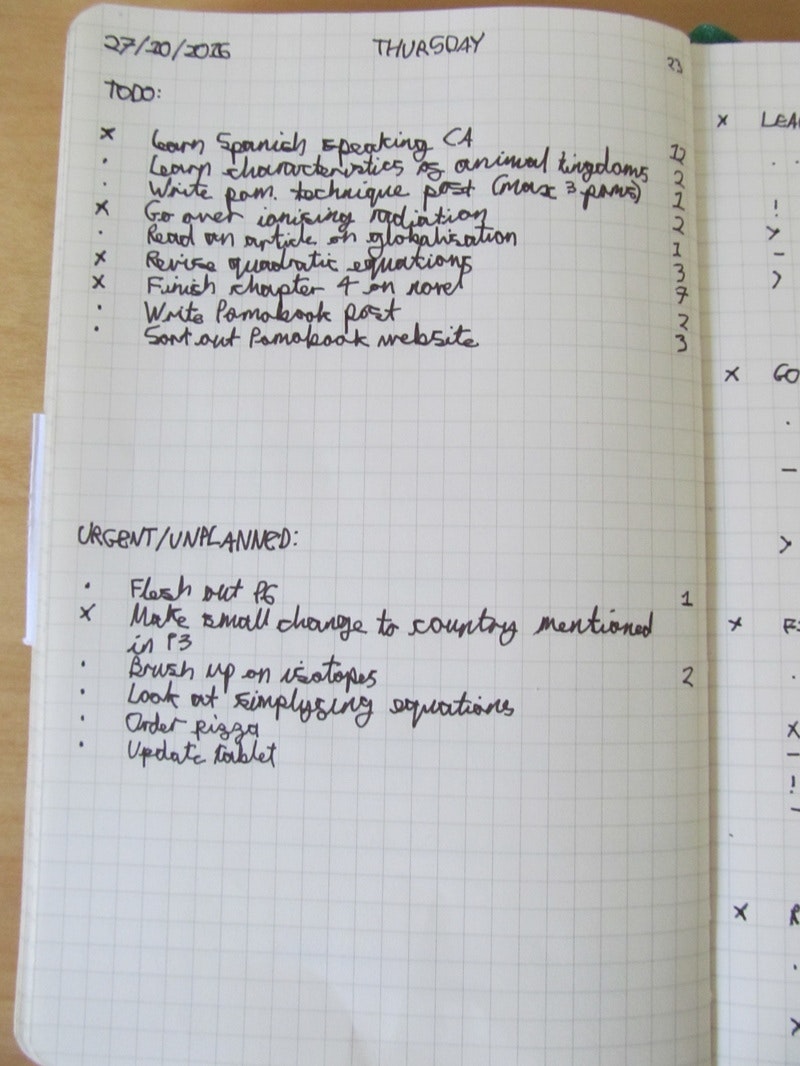 27/10/2016 THURSDAY
23
TODO:
x Learn Spanish speaking CA 12
· Learn characteristics of animal kingdoms 2
· Write pom. technique post (max 3 poms) 1
x Go over ionising radiation 2
· Read an article on globalisation 1
x Revise quadratic equations 3
x Finish chapter 4 on novel 7
· Write Pomobook post 2
· Sort out Pomobook website 3
URGENT/UNPLANNED:
· Flesh out P6 1
x Make small change to country mentioned
in P3
· Brush up on isotopes 2
· Look at simplysing equations
· Order pizza
· Update tablet
x LEA
· ·
!
>
–
>
x GO
·
–
>
x
·
x
–
!
–
x R
·
x